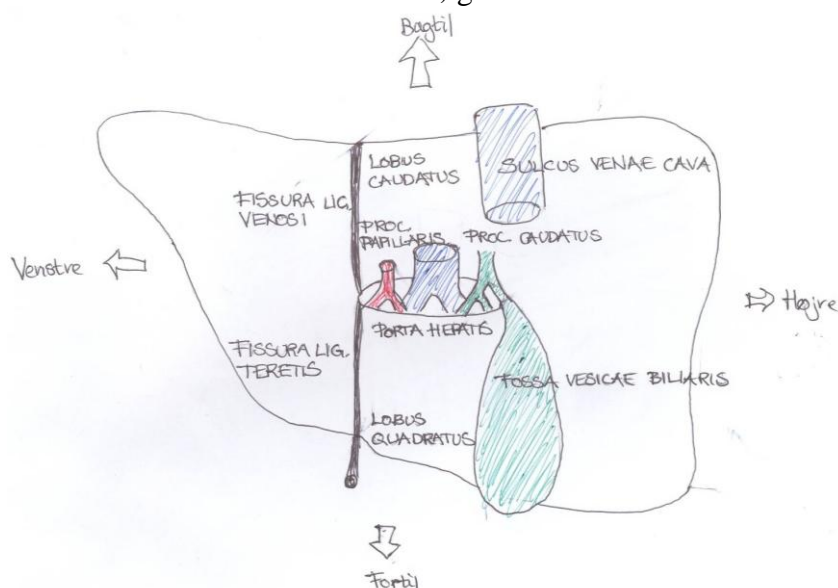 Bagtil
LOBUS
CAUDATUS
SULCUS VENAE CAVA
FISSURA LIG.
VENOSI
PROC.
PAPILLARIS
PROC. CAUDATUS
Venstre
Højre
PORTA HEPATIS
FISSURA LIG.
TERETIS
FOSSA VESICAE BILIARIS
LOBUS
QUADRATUS
Fortil